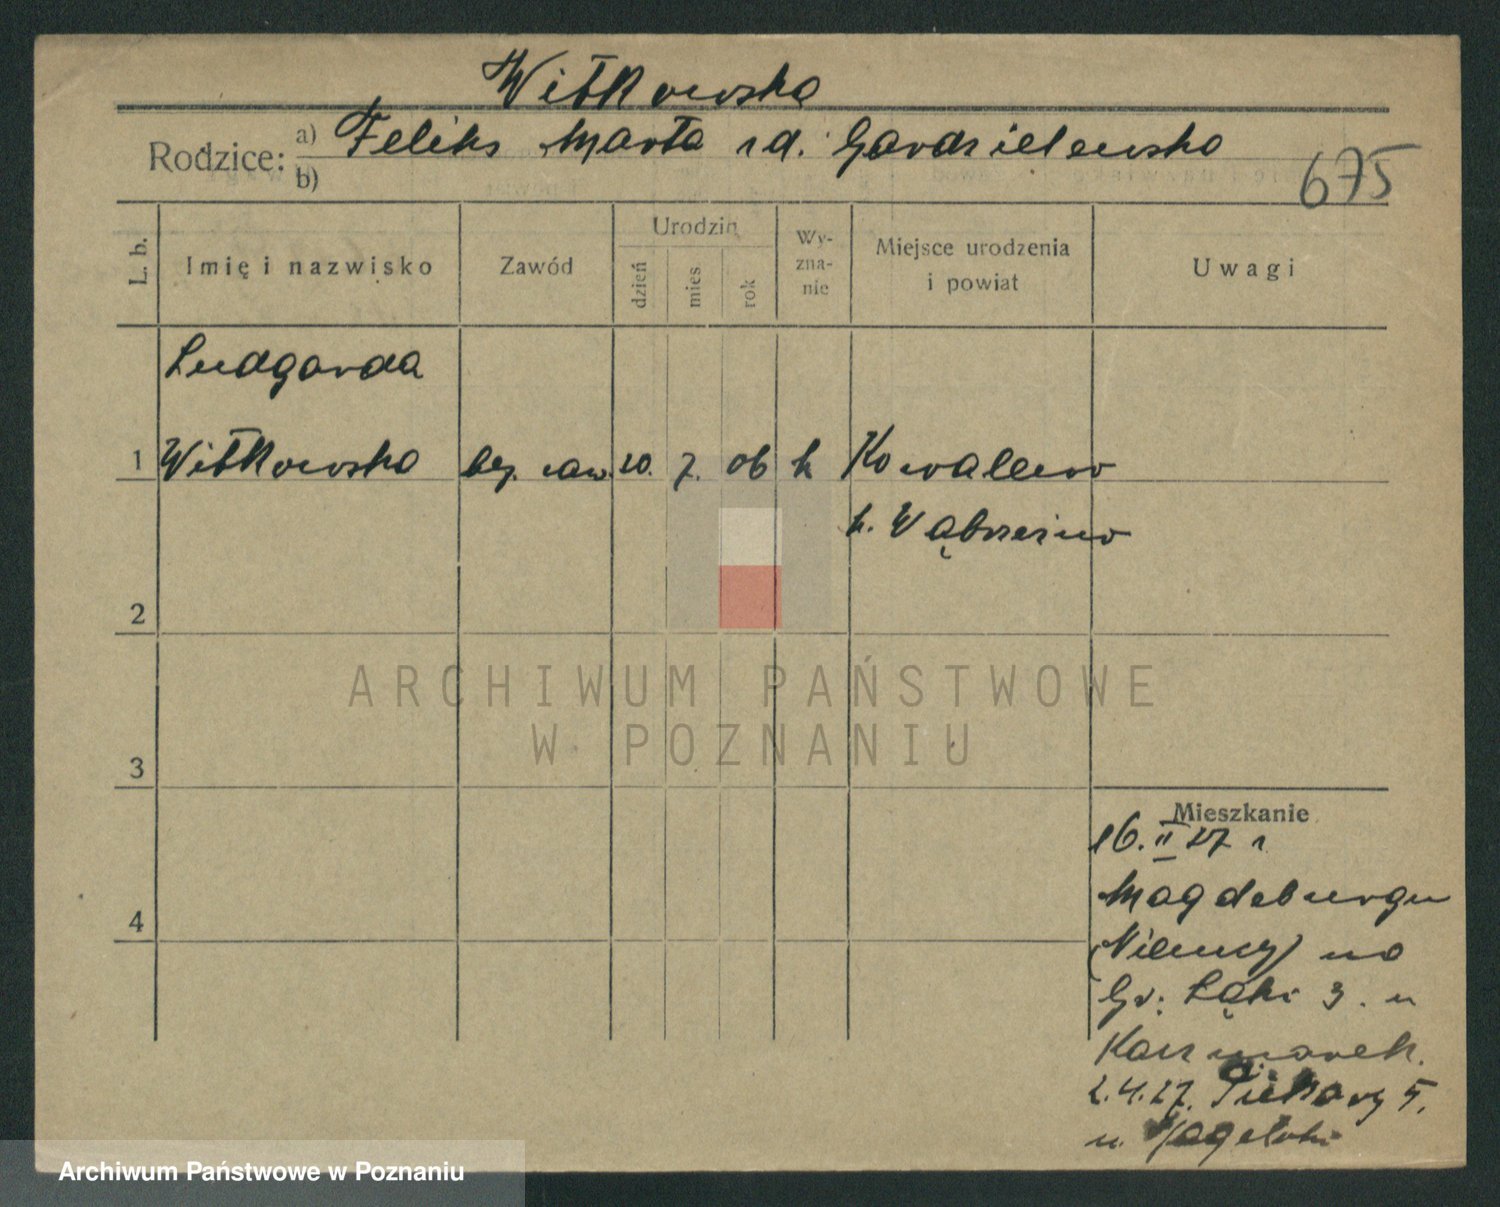 Witkowska
Rodzice: a) Feliks Marta zd. Gardzielewska
b)
675
L. b.
Imię i nazwisko
Zawód
Urodzin
dzień
mies
rok
Wy-
zna-
nie
Miejsce urodzenia
i powiat
Uwagi
Ludgarda
1 Witkowska bez zaw. 20. 7. 06 k Kowalewo
k. Wąbrzeźno
2
ARCHIWUM PAŃSTWOWE
W POZNANIU
3
Mieszkanie
16. II 27 z
Magdeburgu
4
(Niemcy) na
Gr. Łąki 3. u
Kaczmarek.
2.4.27. Piekary 5.
u
Archiwum Państwowe w Poznaniu